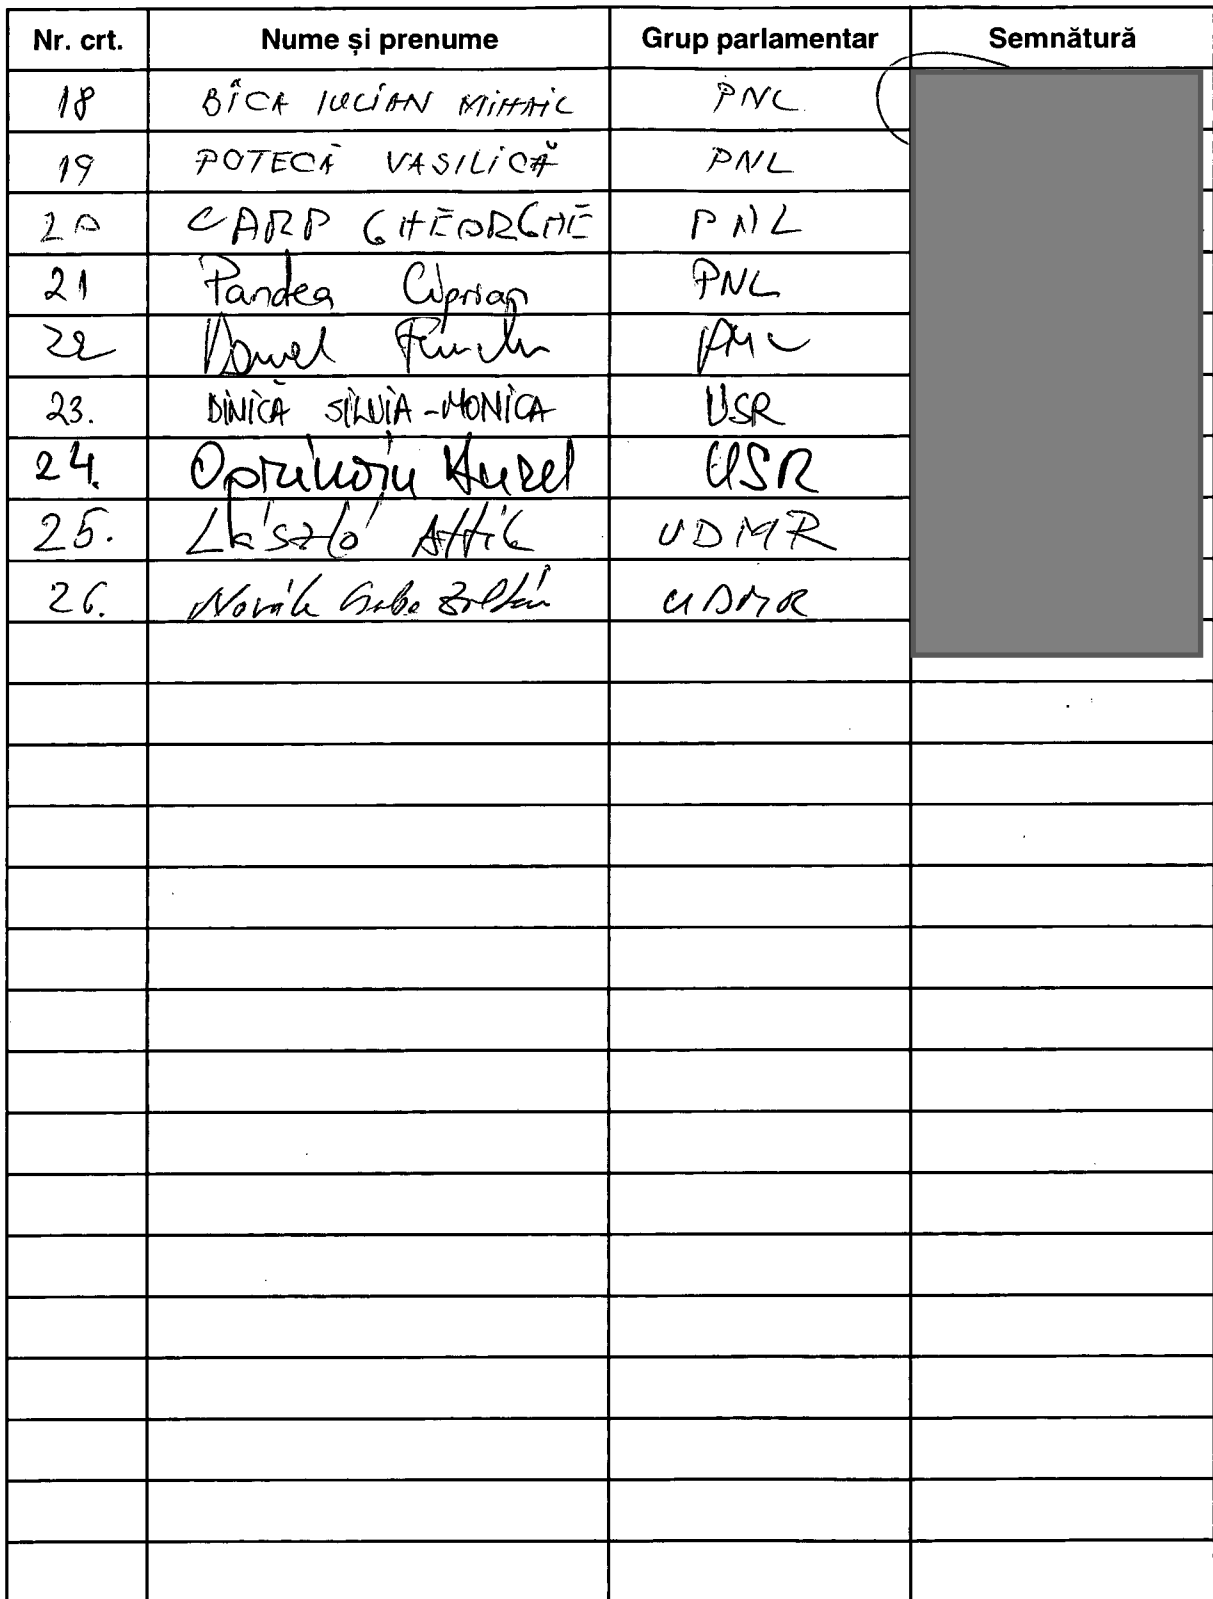 Nr. crt. Nume și prenume Grup parlamentar Semnătură
18 BÎCA IULIAN MIHAIL PNL
19 POTECĂ VASILICĂ PNL
20 CARP GHEORGHE PNL
21 Pandea Ciprian PNL
22
23. DINICĂ SILVIA-MONICA USR
24. Oprinoiu Aurel USR
25. László Attila UDMR
26. Novák Zoltán UDMR